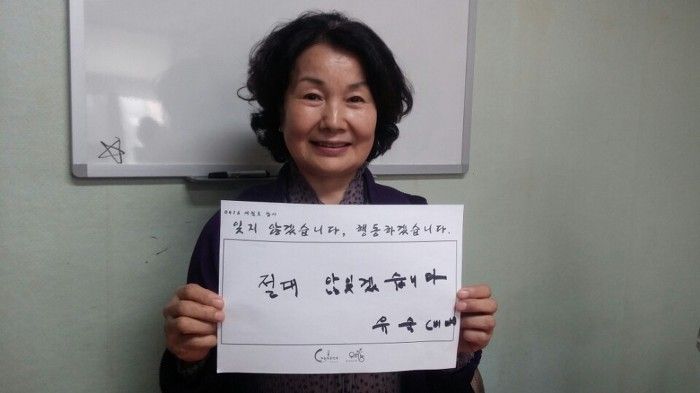 0416 세월호 참사
잊지 않겠습니다, 행동하겠습니다.
절대 안잊겠습니다